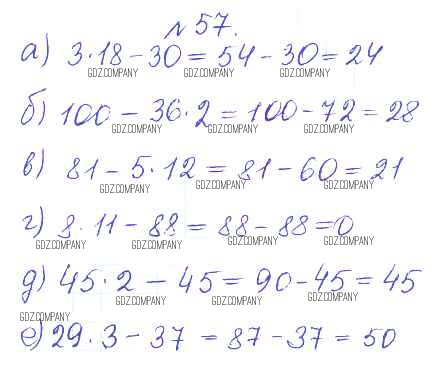 № 57.
а) 3·18 - 30 = 54 - 30 = 24
GDZ.COMPANY GDZ.COMPANY GDZ.COMPANY
б) 100 - 36·2 = 100 - 72 = 28
GDZ.COMPANY GDZ.COMPANY GDZ.COMPANY
в) 81 - 5·12 = 81 - 60 = 21
GDZ.COMPANY GDZ.COMPANY GDZ.COMPANY
г) 8·11 - 88 = 88 - 88 = 0
GDZ.COMPANY GDZ.COMPANY GDZ.COMPANY GDZ.COMPANY
д) 45·2 - 45 = 90 - 45 = 45
GDZ.COMPANY GDZ.COMPANY GDZ.COMPANY
GDZ.COMPANY
е) 29·3 - 37 = 87 - 37 = 50